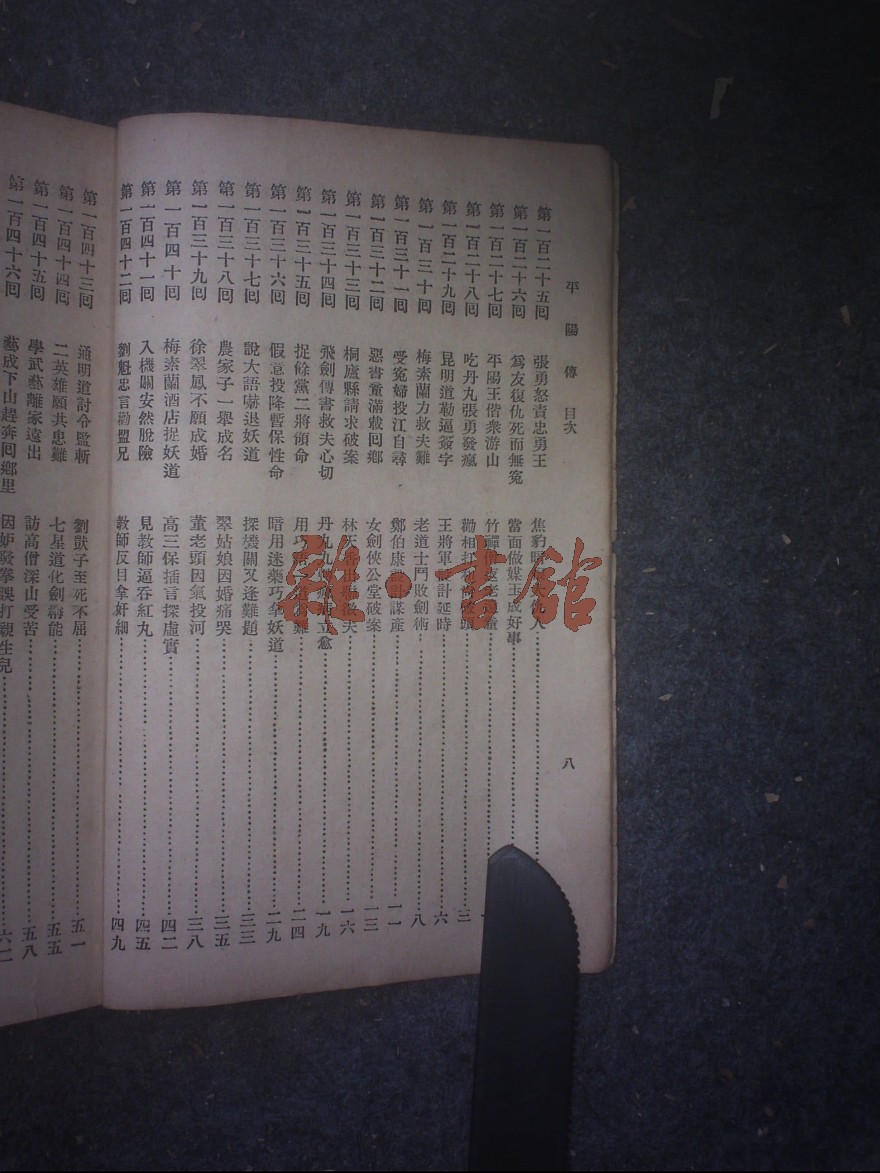 平陽傳 目次
八
第一百二十五囘 張勇怒責忠勇王 焦豹 人
第一百二十六囘 爲友復仇死而無寃 當面做媒玉成好事
第一百二十七囘 平陽王偕衆游山 竹 老 童
第一百二十八囘 吃丹丸張勇發瘋 勸相打 三
第一百二十九囘 昆明道勒逼簽字 王將軍 計延時 六
第一百三十囘 梅素蘭力救夫難 老道士鬥敗劍術 八
第一百三十一囘 受寃婦投江自尋 鄭伯康設計謀產 一一
第一百三十二囘 惡書童滿載囘鄉 女劍俠公堂破案 一三
第一百三十三囘 桐廬縣請求破案 林天 夫 一六
第一百三十四囘 飛劍傳書救夫心切 丹丸 立愈 一九
第一百三十五囘 捉餘黨二將領命 用巧 難 二四
第一百三十六囘 假意投降暫保性命 暗用迷藥巧拿妖道 二九
第一百三十七囘 說大語嚇退妖道 探機關又逢難題 三三
第一百三十八囘 農家子一舉成名 翠姑娘因婚痛哭 三五
第一百三十九囘 徐翠鳳不願成婚 董老頭因氣投河 三八
第一百四十囘 梅素蘭酒店捉妖道 高三保插言探虛實 四二
第一百四十一囘 入機關安然脫險 見教師逼吞紅丸 四五
第一百四十二囘 劉魁忠言勸盟兄 教師反目拿奸細 四九
第一百四十三囘 通明道討令監斬 劉獃子至死不屈 五一
第一百四十四囘 二英雄願共患難 七星道化劍壽能 五五
第一百四十五囘 學武藝離家遠出 訪高僧深山受苦 五八
第一百四十六囘 藝成下山趕奔囘鄉里 因妒發拳誤打親生兒 六二
雜·書館